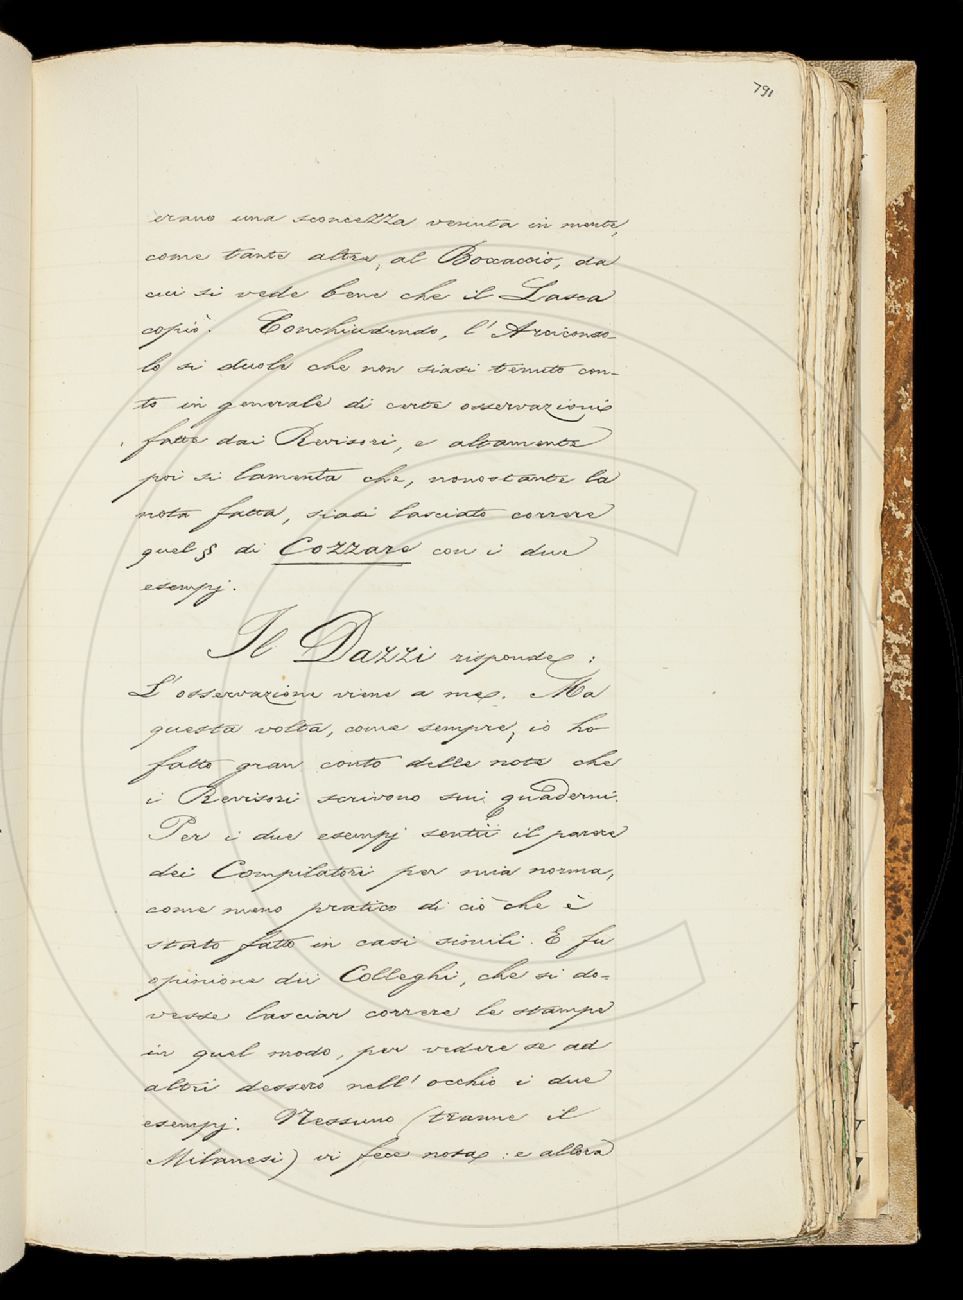 791
erano una sconcezza venuta in mente,
come tante altre, al Boccaccio, da
cui si vede bene che il Lasca
copiò. Conchiudendo, l'Arciconso-
lo si duole che non siasi tenuto con-
to in generale di certe osservazioni
fatte dai Revisori, e altamente
poi si lamenta che, nonostante la
nota fatta, siasi lasciato correre
quel § di Cozzare con i due
esempj.
Il Dazzi risponde:
L'osservazione viene a me. Ma
questa volta, come sempre, io ho
fatto gran conto delle note che
i Revisori scrivono sui quaderni.
Per i due esempj sentii il parere
dei Compilatori per mia norma,
come meno pratico di ciò che è
stato fatto in casi simili. E fu
opinione dei Colleghi, che si do-
vesse lasciar correre le stampe
in quel modo, per vedere se ad
altri dessero nell'occhio i due
esempj. Nessuno (tranne il
Milanesi) vi fece nota: e allora